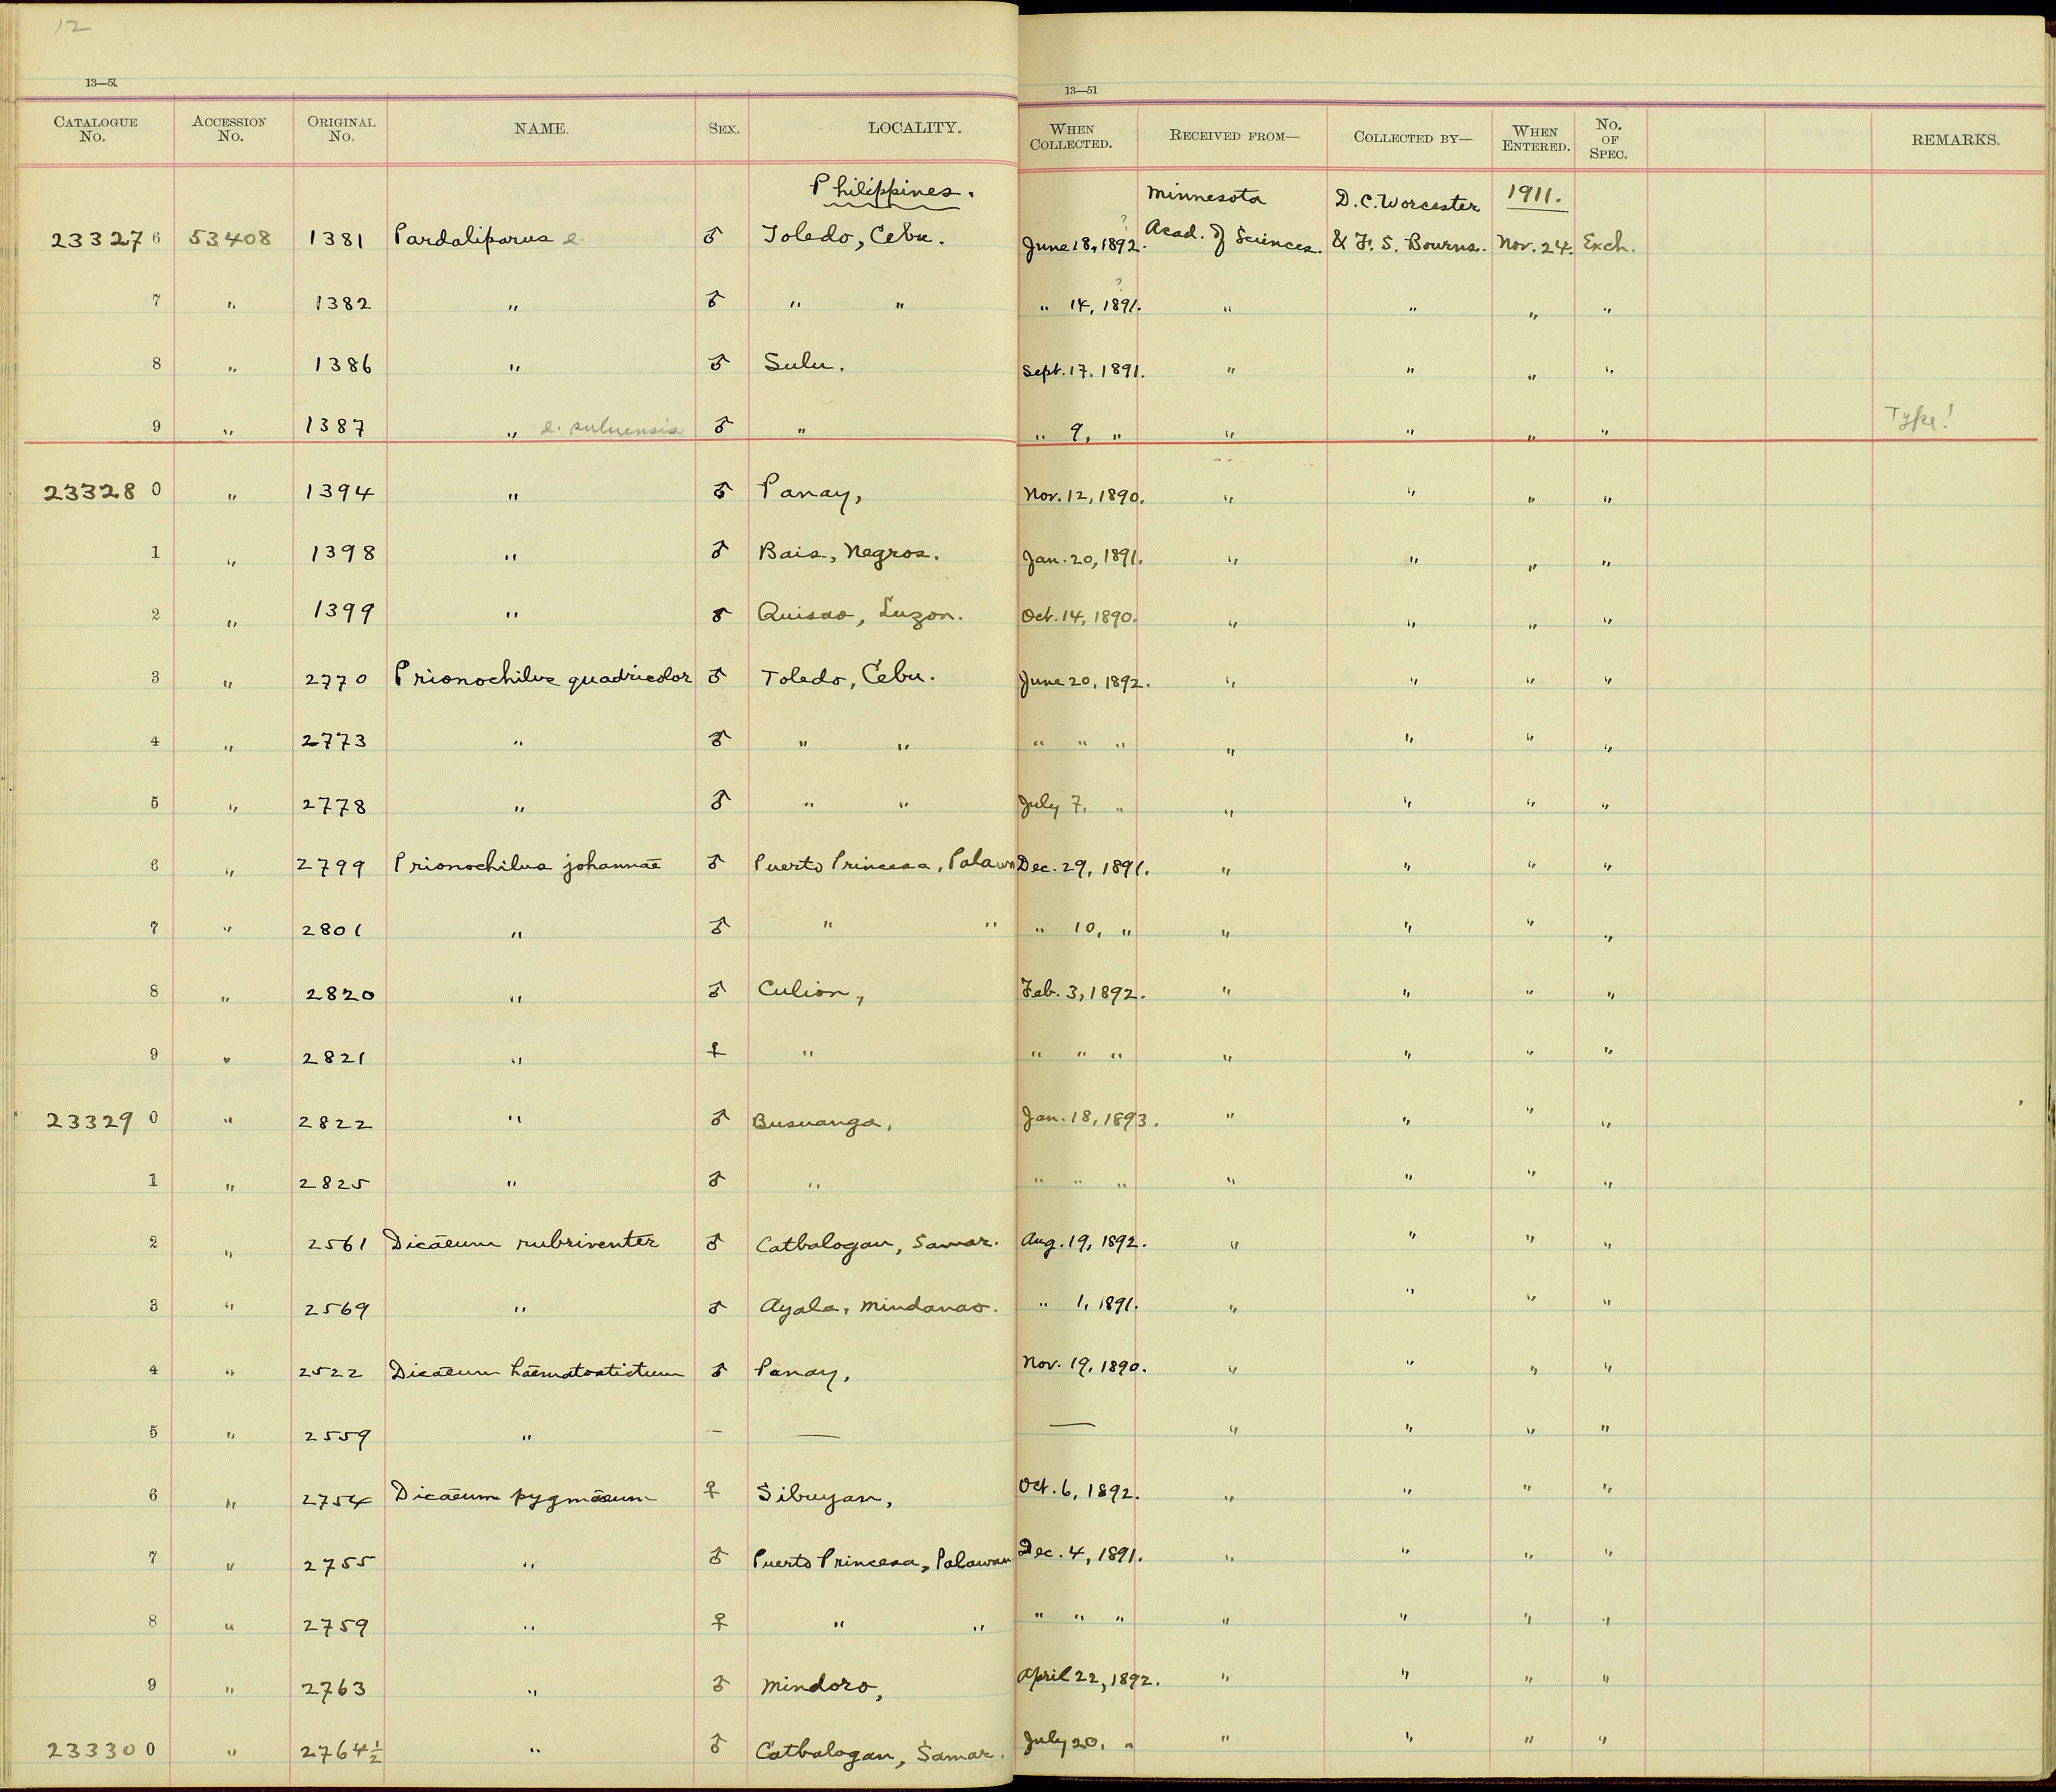 12
13—50 13—51
CATALOGUE No. ACCESSION No. ORIGINAL No. NAME. SEX. LOCALITY. WHEN COLLECTED. RECEIVED FROM— COLLECTED BY— WHEN ENTERED. No. OF SPEC. REMARKS.
Philippines. Minnesota D.C. Worcester 1911.
233276 53408 1381 Pardaliparus e. ♂ Toledo, Cebu. June 18, 1892. ? Acad. of Sciences. & F. S. Bourns. Nov. 24. Exch.
7 " 1382 " ♂ " " " 14, 1891. ? " " " "
8 " 1386 " ♂ Sulu. Sept. 17, 1891. " " " "
9 " 1387 " e. suluensis ♂ " " 9, " " " " " Type!
233280 " 1394 " ♂ Panay, Nov. 12, 1890. " " " "
1 " 1398 " ♂ Bais, Negros. Jan. 20, 1891. " " " "
2 " 1399 " ♂ Quisao, Luzon. Oct. 14, 1890. " " " "
3 " 2770 Prionochilus quadricolor ♂ Toledo, Cebu. June 20, 1892. " " " "
4 " 2773 " ♂ " " " " " " " " "
5 " 2778 " ♂ " " July 7, " " " " "
6 " 2799 Prionochilus johannae ♂ Puerto Princesa, Palawn Dec. 29, 1891. " " " "
7 " 2801 " ♂ " " " 10, " " " " "
8 " 2820 " ♂ Culion, Feb. 3, 1892. " " " "
9 " 2821 " ♀ " " " " " " " "
233290 " 2822 " ♂ Busuanga, Jan. 18, 1893. " " " "
1 " 2825 " ♂ " " " " " " " "
2 " 2561 Dicaeum rubriventer ♂ Catbalogan, Samar. Aug. 19, 1892. " " " "
3 " 2569 " ♂ Ayala, Mindanao. " 1, 1891. " " " "
4 " 2522 Dicaeum haematostictum ♂ Panay, Nov. 19, 1890. " " " "
5 " 2559 " — — — " " " "
6 " 2754 Dicaeum pygmaeum ♀ Sibuyan, Oct. 6, 1892. " " " "
7 " 2755 " ♂ Puerto Princesa, Palawan Dec. 4, 1891. " " " "
8 " 2759 " ♀ " " " " " " " " "
9 " 2763 " ♂ Mindoro, April 22, 1892. " " " "
233300 " 2764½ " ♂ Catbalogan, Samar. July 20, " " " " "